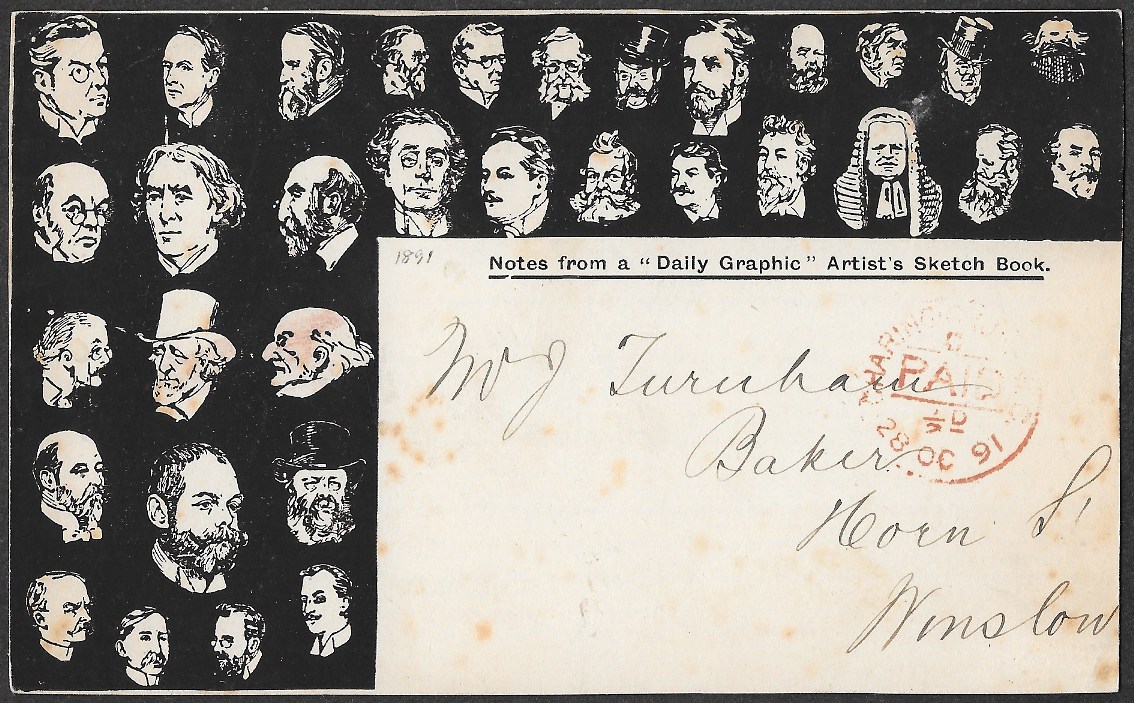 1891
Notes from a "Daily Graphic" Artist's Sketch Book.
Mr J Turnham
Baker
Horn St
Winslow
PAID
½D
28 OC 91